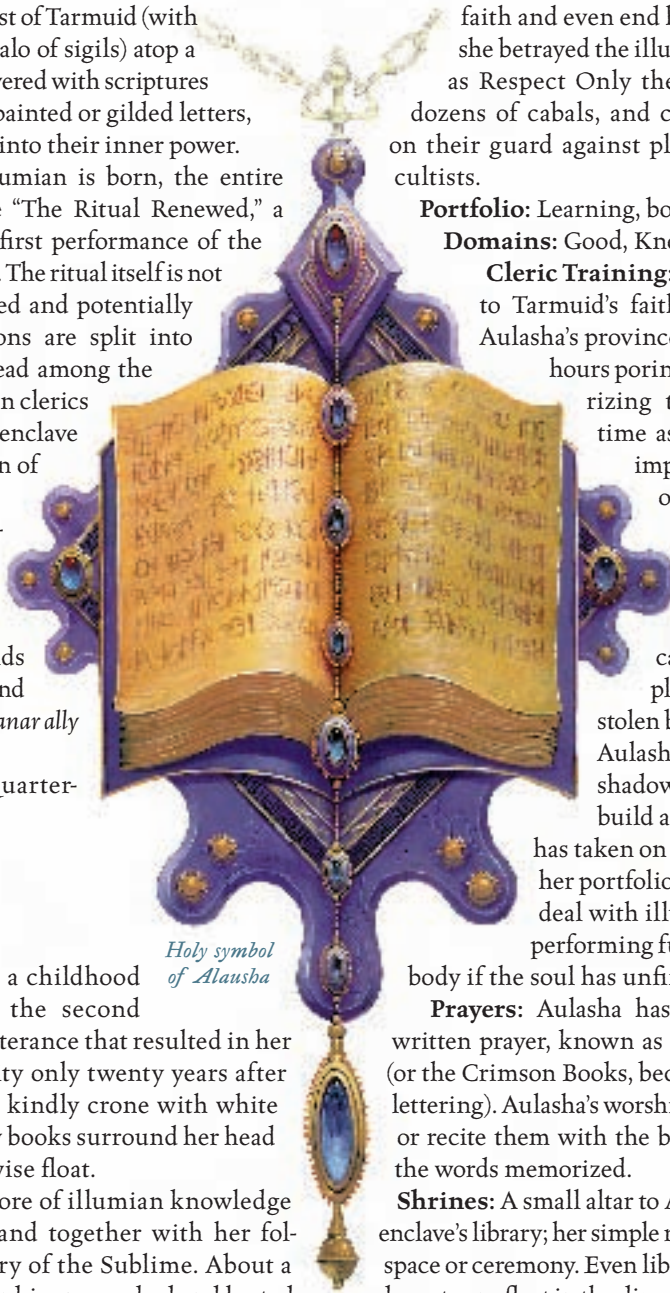 st of Tarmuid (with
alo of sigils) atop a
vered with scriptures
painted or gilded letters,
into their inner power.
umian is born, the entire
e “The Ritual Renewed,” a
first performance of the
. The ritual itself is not
ed and potentially
ons are split into
ead among the
n clerics
enclave
n of
-
ds
nd
anar ally
uarter-
a childhood
the second
terance that resulted in her
ty only twenty years after
kindly crone with white
y books surround her head
wise float.
ore of illumian knowledge
and together with her fol-
ry of the Sublime. About a
Holy symbol
of Alausha
faith and even end h
she betrayed the illu
as Respect Only the
dozens of cabals, and c
on their guard against pl
cultists.
Portfolio: Learning, bo
Domains: Good, Kno
Cleric Training:
to Tarmuid’s faith
Aulasha’s province
hours porin
rizing t
time as
imp
o
ca
pl
stolen b
Aulash
shadow
build a
has taken on
her portfolio
deal with ill
performing fu
body if the soul has unfi
Prayers: Aulasha has
written prayer, known as
(or the Crimson Books, bec
lettering). Aulasha’s worshi
or recite them with the b
the words memorized.
Shrines: A small altar to A
enclave’s library; her simple r
space or ceremony. Even lib